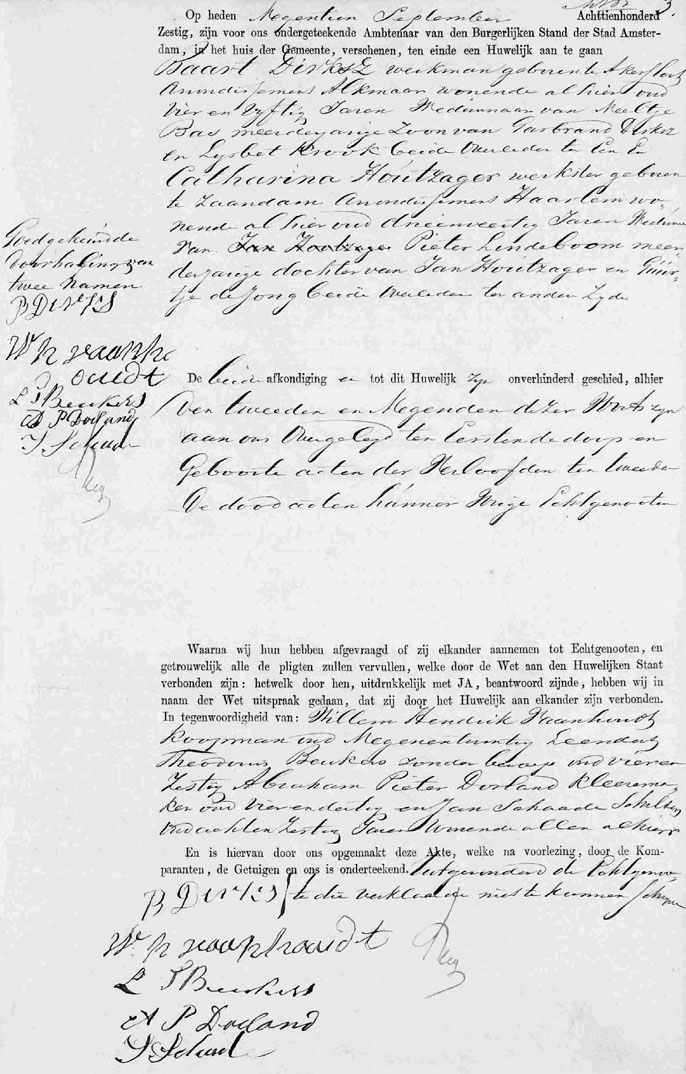 Op heden Negentien September Achttienhonderd
Zestig, zijn voor ons ondergeteekende Ambtenaar van den Burgerlijken Stand der Stad Amster-
dam, in het huis der Gemeente, verschenen, ten einde een Huwelijk aan te gaan
Baart Dirksz werkman geboren te Akersloot
Arrondissement Alkmaar wonende alhier oud
vier en vyftig Jaren Weduwnaar van Neeltje
Bas meerderjarige Zoon van Garbrand Dirksz
en Lysbet Krook beide overleden ter Een
Catharina Houtzager werkster geboren
te Zaandam Arrondissement Haarlem wo-
nende alhier oud drieenveertig Jaren Weduwe
van Jan Houtzager Pieter Lindeboom meer-
derjarige dochter van Jan Houtzager en Guur-
tje de Jong beide overleden ter andere Zyde
Goedgekeurd de
doorhaling van
twee namen
B Dirks
L T Beukers
A P Dorland
De beide afkondiging en tot dit Huwelijk zyn onverhinderd geschied, alhier
den tweeden en Negenden dezer
aan ons Overgelegd ten Eerste doop en
Geboorte acten der Verloofden ten tweede
De dood acten hunner Vorige Echtgenooten
Waarna wij hun hebben afgevraagd of zij elkander aannemen tot Echtgenooten, en
getrouwelijk alle de pligten zullen vervullen, welke door de Wet aan den Huwelijken Staat
verbonden zijn: hetwelk door hen, uitdrukkelijk met JA, beantwoord zijnde, hebben wij in
naam der Wet uitspraak gedaan, dat zij door het Huwelijk aan elkander zijn verbonden.
In tegenwoordigheid van: Willem Hendrik
Koopman oud Negenentwintig Leendert
Theodorus Beukers zonder beroep oud vier en
Zestig Abraham Pieter Dorland Kleerema-
ker oud vier en dertig en Jan Schaade Schilder
oud acht en Zestig Jaren Wonende allen alhier
En is hiervan door ons opgemaakt deze Akte, welke na voorlezing, door de Kom-
paranten, de Getuigen en ons is onderteekend. Uitgezonderd de Echtgenoo-
te die verklaarde niet te kunnen schryven
B Dirks
L T Beukers
A P Dorland